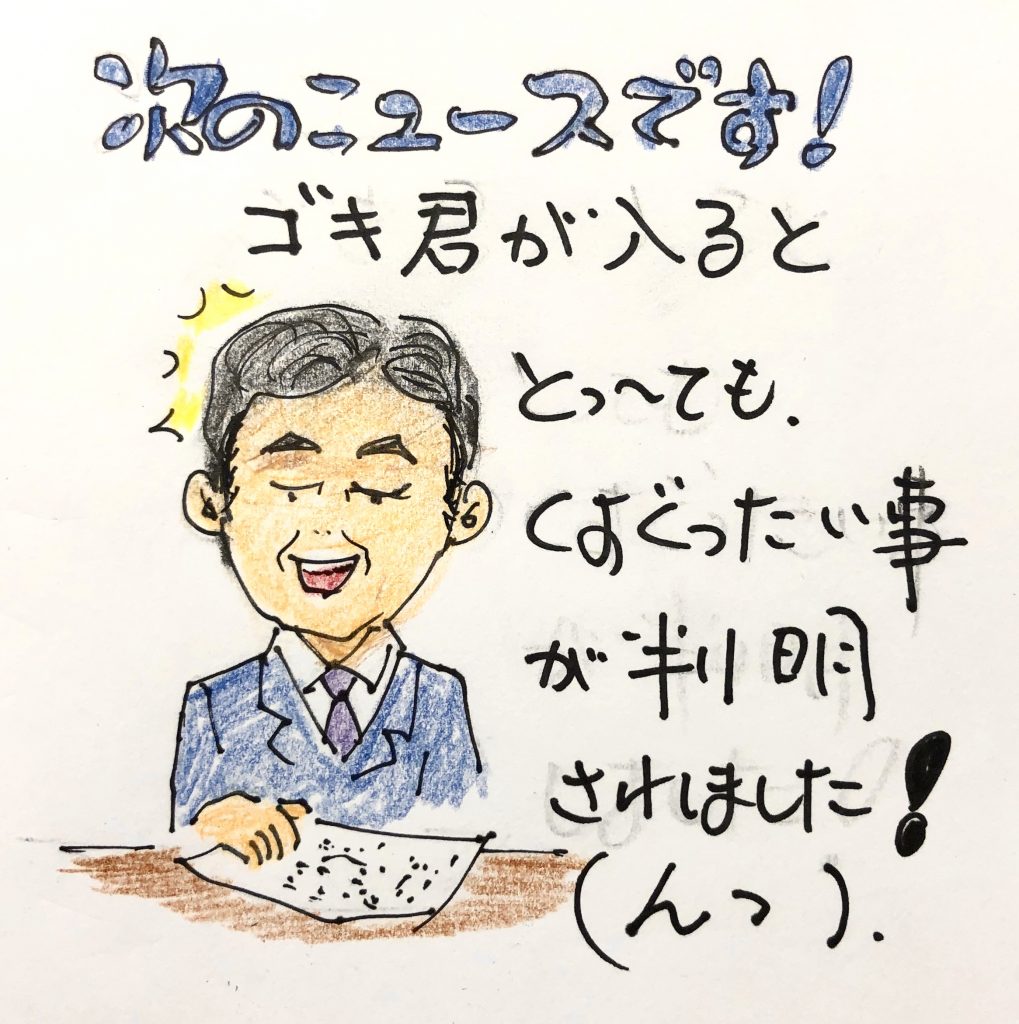 次のニュースです!
ゴキ君が入ると
とっ〜ても.
くすぐったい事
が判明
されました!
(んっ).